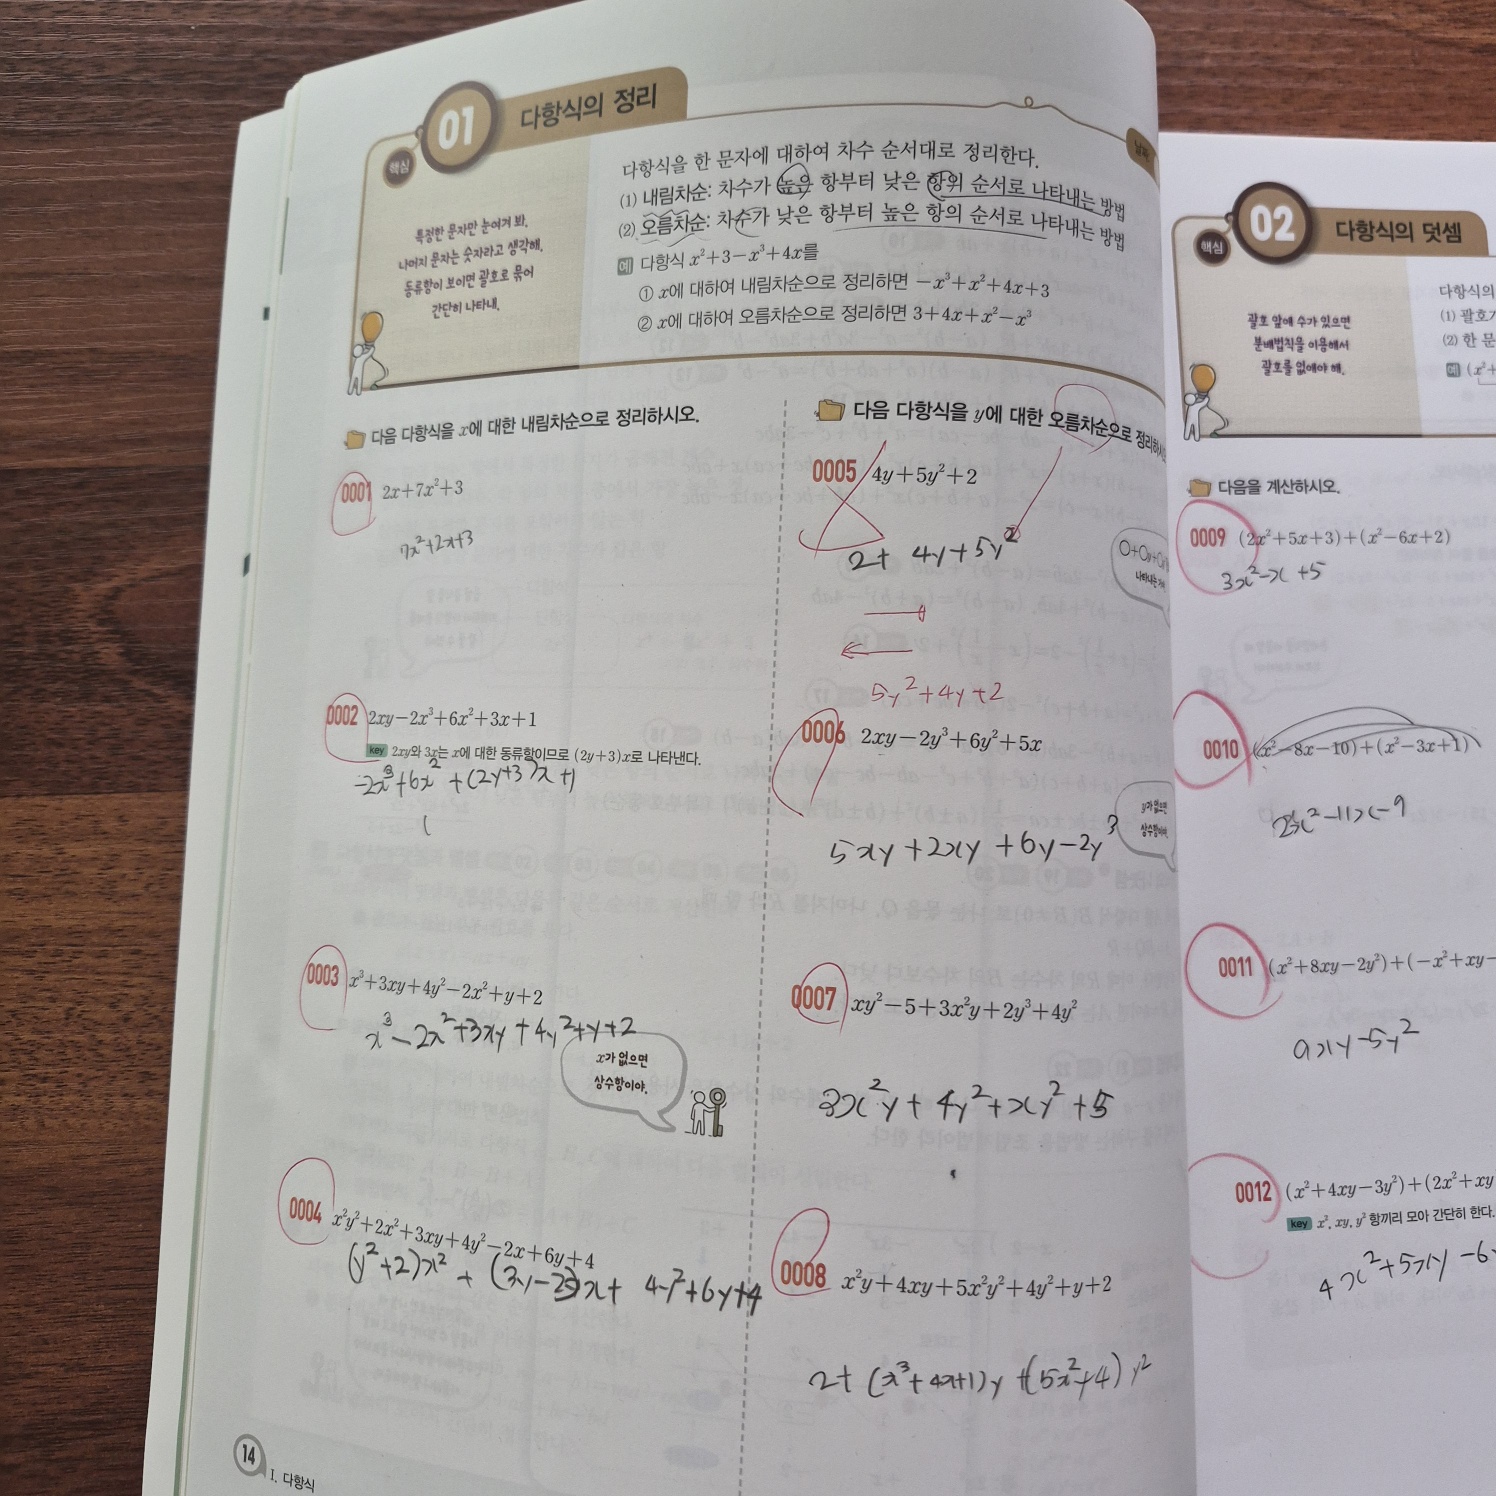 01 다항식의 정리
핵심
특정한 문자만 눈여겨 봐.
나머지 문자는 숫자라고 생각해.
동류항이 보이면 괄호로 묶어
간단히 나타내.
다항식을 한 문자에 대하여 차수 순서대로 정리한다.
(1) 내림차순: 차수가 높은 항부터 낮은 항의 순서로 나타내는 방법
(2) 오름차순: 차수가 낮은 항부터 높은 항의 순서로 나타내는 방법
예 다항식 x²+3-x³+4x를
① x에 대하여 내림차순으로 정리하면 -x³+x²+4x+3
② x에 대하여 오름차순으로 정리하면 3+4x+x²-x³
다음 다항식을 x에 대한 내림차순으로 정리하시오.
0001 2x+7x²+3
7x²+2x+3
0002 2xy-2x³+6x²+3x+1
key 2xy와 3x는 x에 대한 동류항이므로 (2y+3)x로 나타낸다.
-2x³+6x²+(2y+3)x+1
0003 x³+3xy+4y²-2x²+y+2
x³-2x²+3xy+4y²+y+2
x가 없으면
상수항이야.
0004 x²y²+2x²+3xy+4y²-2x+6y+4
(y²+2)x²+(3y-2)x+4y²+6y+4
다음 다항식을 y에 대한 오름차순으로
0005 4y+5y²+2
2+4y+5y²
5y²+4y+2
0006 2xy-2y³+6y²+5x
y가 없으면
상수항이야.
5xy+2xy+6y-2y³
0007 xy²-5+3x²y+2y³+4y²
3x²y+4y²+xy²+5
0008 x²y+4xy+5x²y²+4y²+y+2
2+(x³+4x+1)y+(5x²+4)y²
14
I. 다항식
02 다항식의 덧셈
핵심
괄호 앞에 수가 있으면
분배법칙을 이용해서
괄호를 없애야 해.
다항식의
(1) 괄호
(2) 한
예 (x²+
다음을 계산하시오.
0009 (2x²+5x+3)+(x²-6x+2)
3x²-x+5
0010 (x²-8x-10)+(x²-3x+1)
2x²-11x-9
0011 (x²+8xy-2y²)+(-x²+xy-
9xy-5y²
0012 (x²+4xy-3y²)+(2x²+xy
key x², xy, y² 항끼리 모아 간단히 한다.
4x²+5xy-6